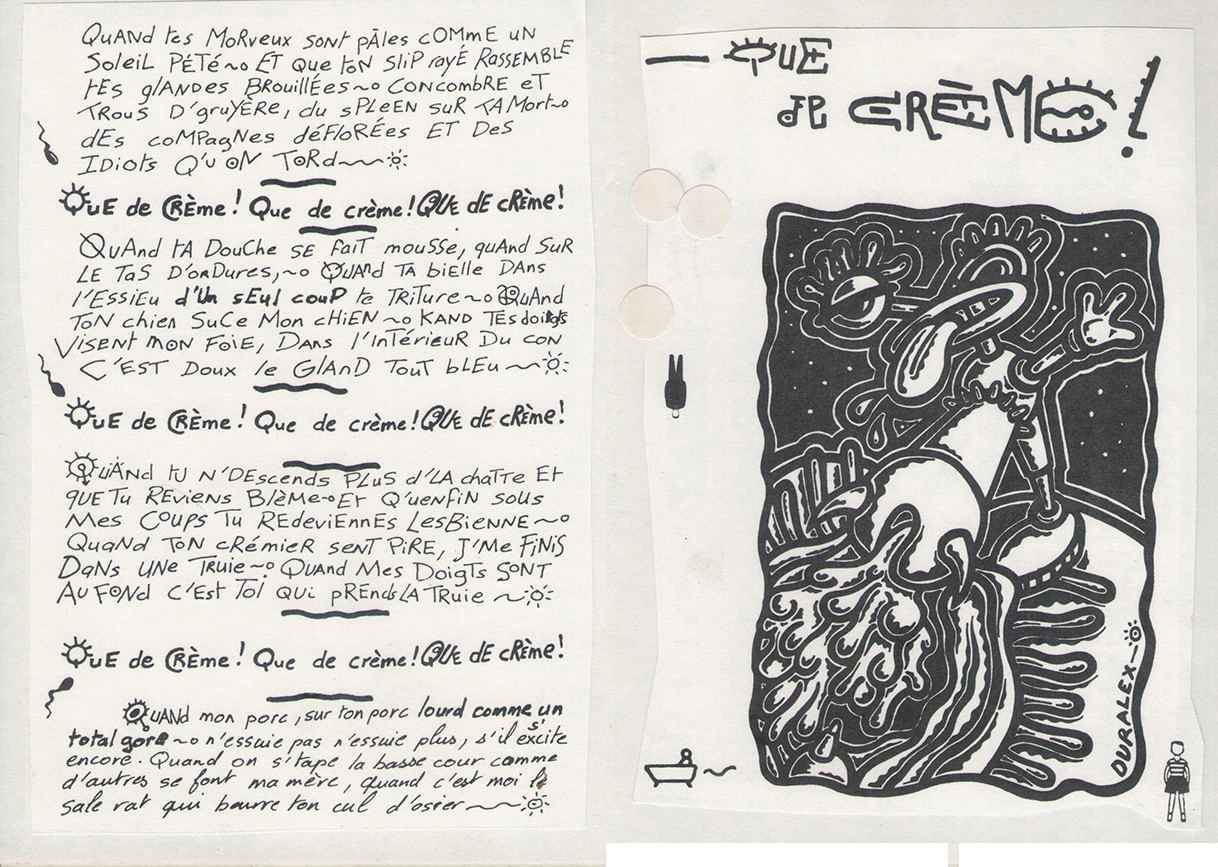 QUANd tes MoRveux sont pÂles COMME UN
SoleiL PÉTÉ~o ET Que toN Slip rayÉ RASSEMBLE
tEs glANDES BRouillÉes~o CoNcombRe et
TRous D'gruYÈRe, du sPLeeN suR TA Mort~o
dEs coMPagNes dÉFloRÉes ET Des
IDiots Q'u'oN ToRd
QuE de CRÈme! Que de crème! QUE dE cRème!
QuANd tA DouChe SE FaiT mousse, quANd SuR
LE TaS D'oRDures,~o QuANd TA bielle DANs
l'ESSiEu d'UN sEul couP te TRiTure~o QuANd
ToN chien SuCe MoN cHiEN~o KAND TES doigts
VisENt MoN FoiE, DANs l'iNTÉRieuR Du coN
C'EST Doux le GlANd TouT bLEu
QuE de CRÈme! Que de crème! QUE dE cRème!
QuANd tu N'DEscends PLuS d'LA chatte Et
QUE Tu REviens BlèMe~o Et Q'uENFiN sous
Mes CoupS Tu REdeviENNEs LesBieNNe~o
QuaNd ToN cRÉmieR seNT PiRE, J'Me FiNiS
DaNs UNe TRuie~o QuANd Mes DoigTs SoNT
AU FoNd C'Est ToI QUi pRENds LA TRuie
QuE de CRÈme! Que de crème! QUE dE cRème!
QuANd mon porc, sur ton porc lourd comme un
total gore~o n'essuie pas n'essuie plus, s'il s'excite
encore. Quand on s'tape la basse cour comme
d'autres se font ma mère, quand c'est moi le
sale rat qui beurre ton cul d'osier
— QUE
DE CRÈME!
DURALEX